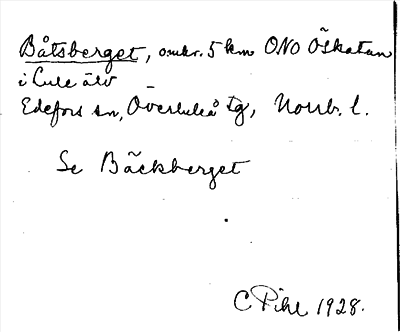 Båtsberget, omkr. 5 km ONO Öskatan
i Lule älv
Edefors sn, Överluleå tg, Norrb. l.
Se Bäckberget
C Pihl 1928.